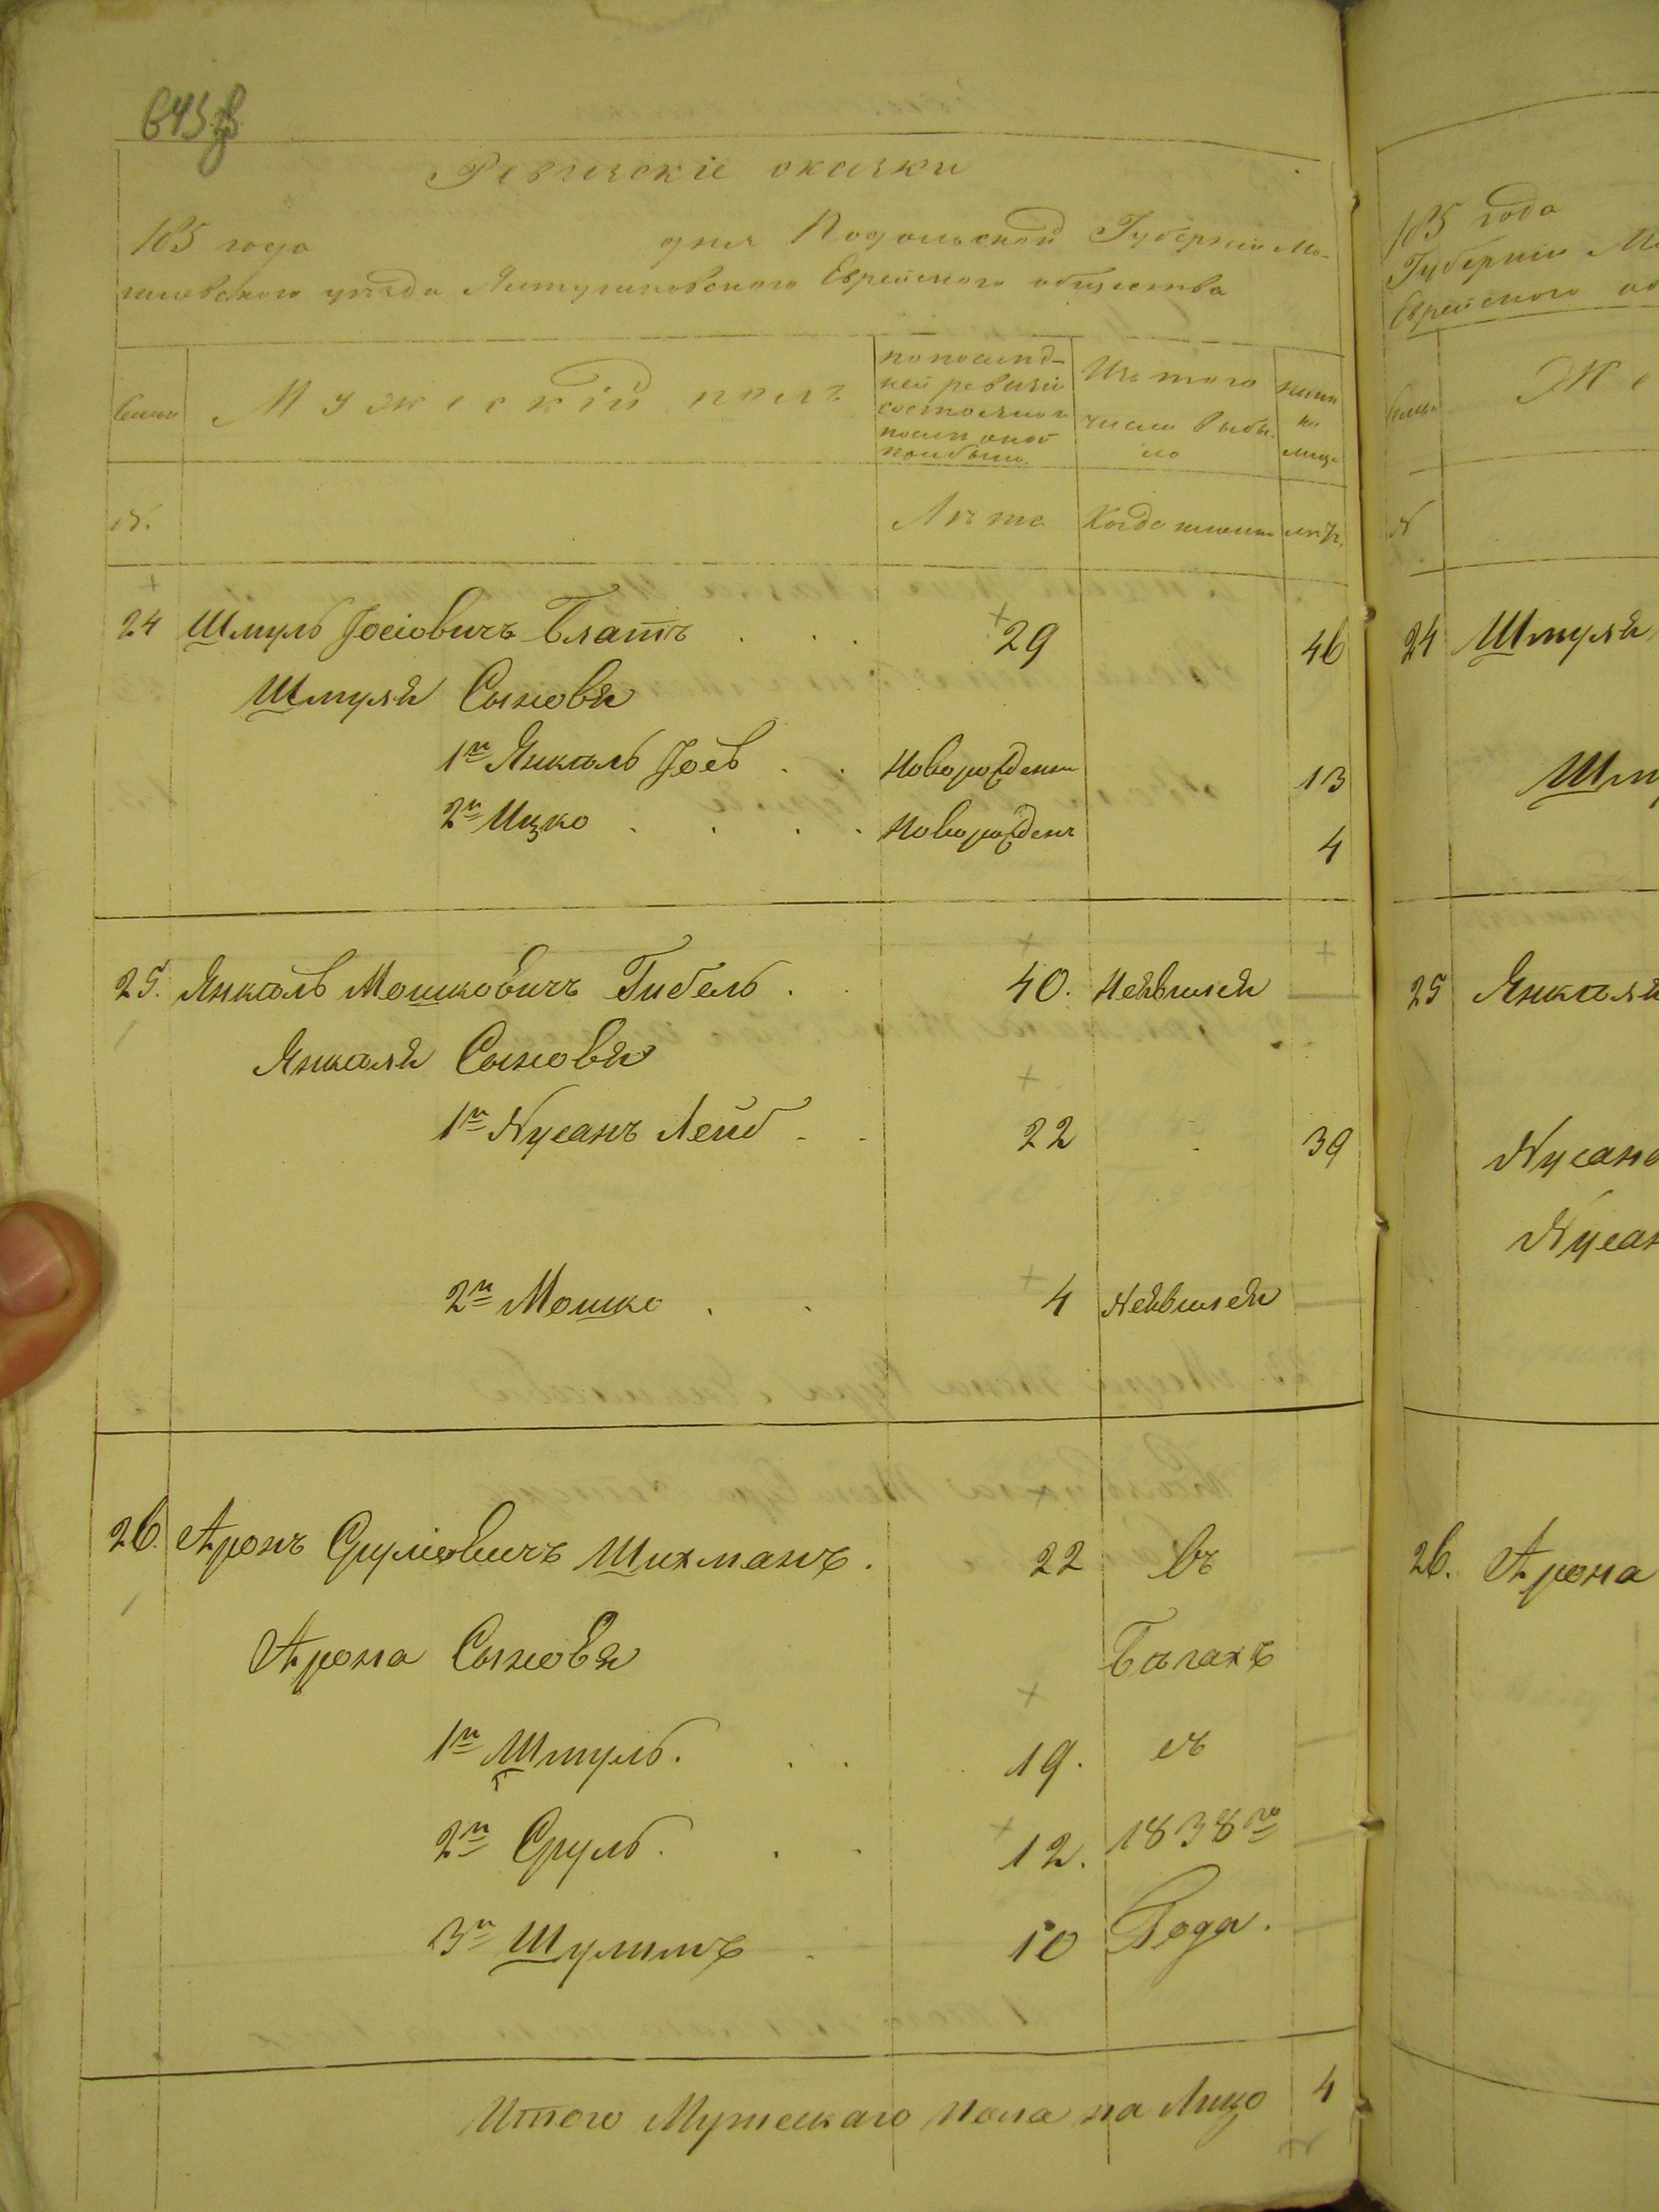 Ревизскіе сказки
185 года дня Подольской Губерніи Мо-
гилевскаго уѣзда Ялтушковскаго Еврейскаго общества
Мужескій полъ
по послѣд-
ней ревизіи
состояло и
послѣ оной
прибыло.
Изъ того
числа выбы-
ло
ныне
на
лицо
№.
Лѣта
Когда именно
лѣта.
24 Шмуль Іосіовичъ Блатъ . . . 29 46
Шмуля Сыновья
1й Янкель Іосъ . . Новорожден 13
2й Ицко . . . . Новорожденъ 4
25. Янкель Мошковичъ Гибель . . 40. Неявился —
Янкеля Сыновья
1й Нусанъ Лейб . . 22 . 39
2й Мошко . . 4 Неявился —
26. Аронъ Сруліовичъ Шихманъ . 22 въ
Арона Сыновья Бѣгахъ
1й Шмуль. . . 19. съ
2й Сруль. . . 12. 1838го
3й Шулимъ . 10 Года.
Итого Мужескаго пола на Лицо 4
185 года
Губерніи
Еврейскаго
№
24 Шмуля
25 Янкеля
Нусана
26. Арона